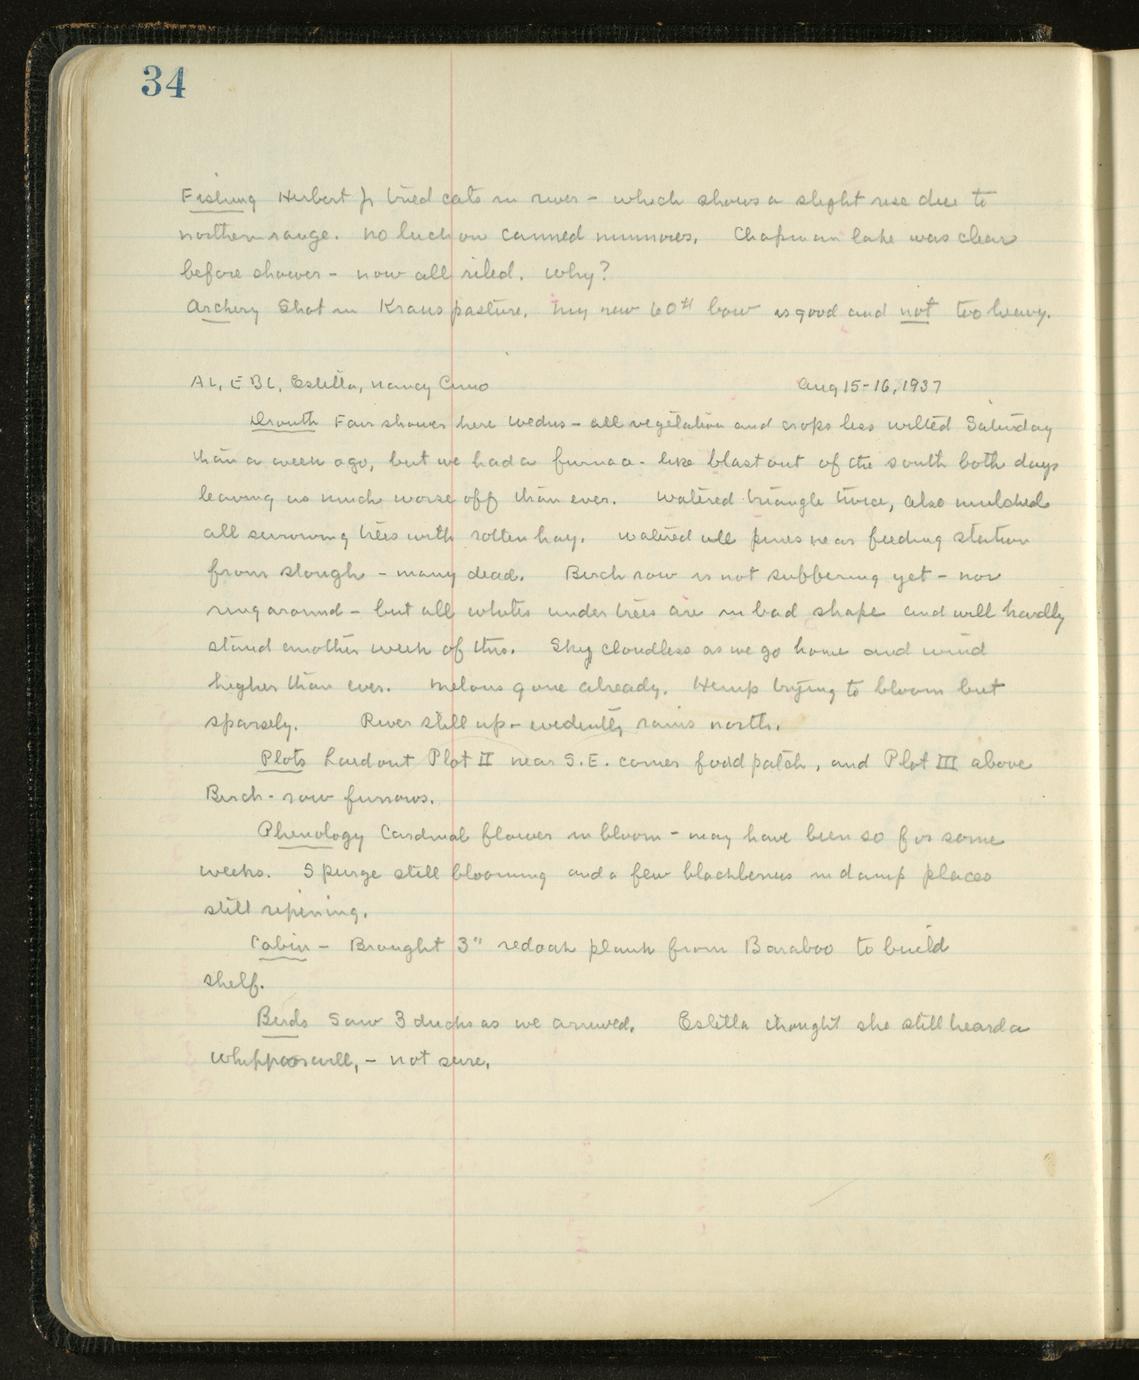 34
Fishing Herbert Jr tried cats in river - which shows a slight rise due to
northern range. No luck on canned minnows. Chapman lake was clear
before shower - now all riled. Why?
Archery Shot in Kraus pasture. My new 60# bow is good and not too heavy.
AL, EBL, Estella, Nancy Cuno Aug 15-16, 1937
Drouth Fair shower here Wednes - all vegetation and crops less wilted Saturday
than a week ago, but we had a furnace-like blast out of the south both days
leaving us much worse off than ever. Watered triangle twice, also mulched
all surviving trees with rotten hay. Watered all pines near feeding station
from slough - many dead. Birch row is not suffering yet - nor
ring around - but all whites under trees are in bad shape and will hardly
stand another week of this. Sky cloudless as we go home and wind
higher than ever. Melons gone already. Hemp trying to bloom but
sparsely. River still up - evidently rains north.
Plots Laid out Plot II near S.E. corner food patch, and Plot III above
Birch-row furrows.
Phenology Cardinal flower in bloom - may have been so for some
weeks. Spurge still blooming and a few blackberries in damp places
still ripening.
Cabin - Brought 3" red oak plank from Baraboo to build
shelf.
Birds Saw 3 ducks as we arrived. Estella thought she still heard a
whippoorwill, - not sure.